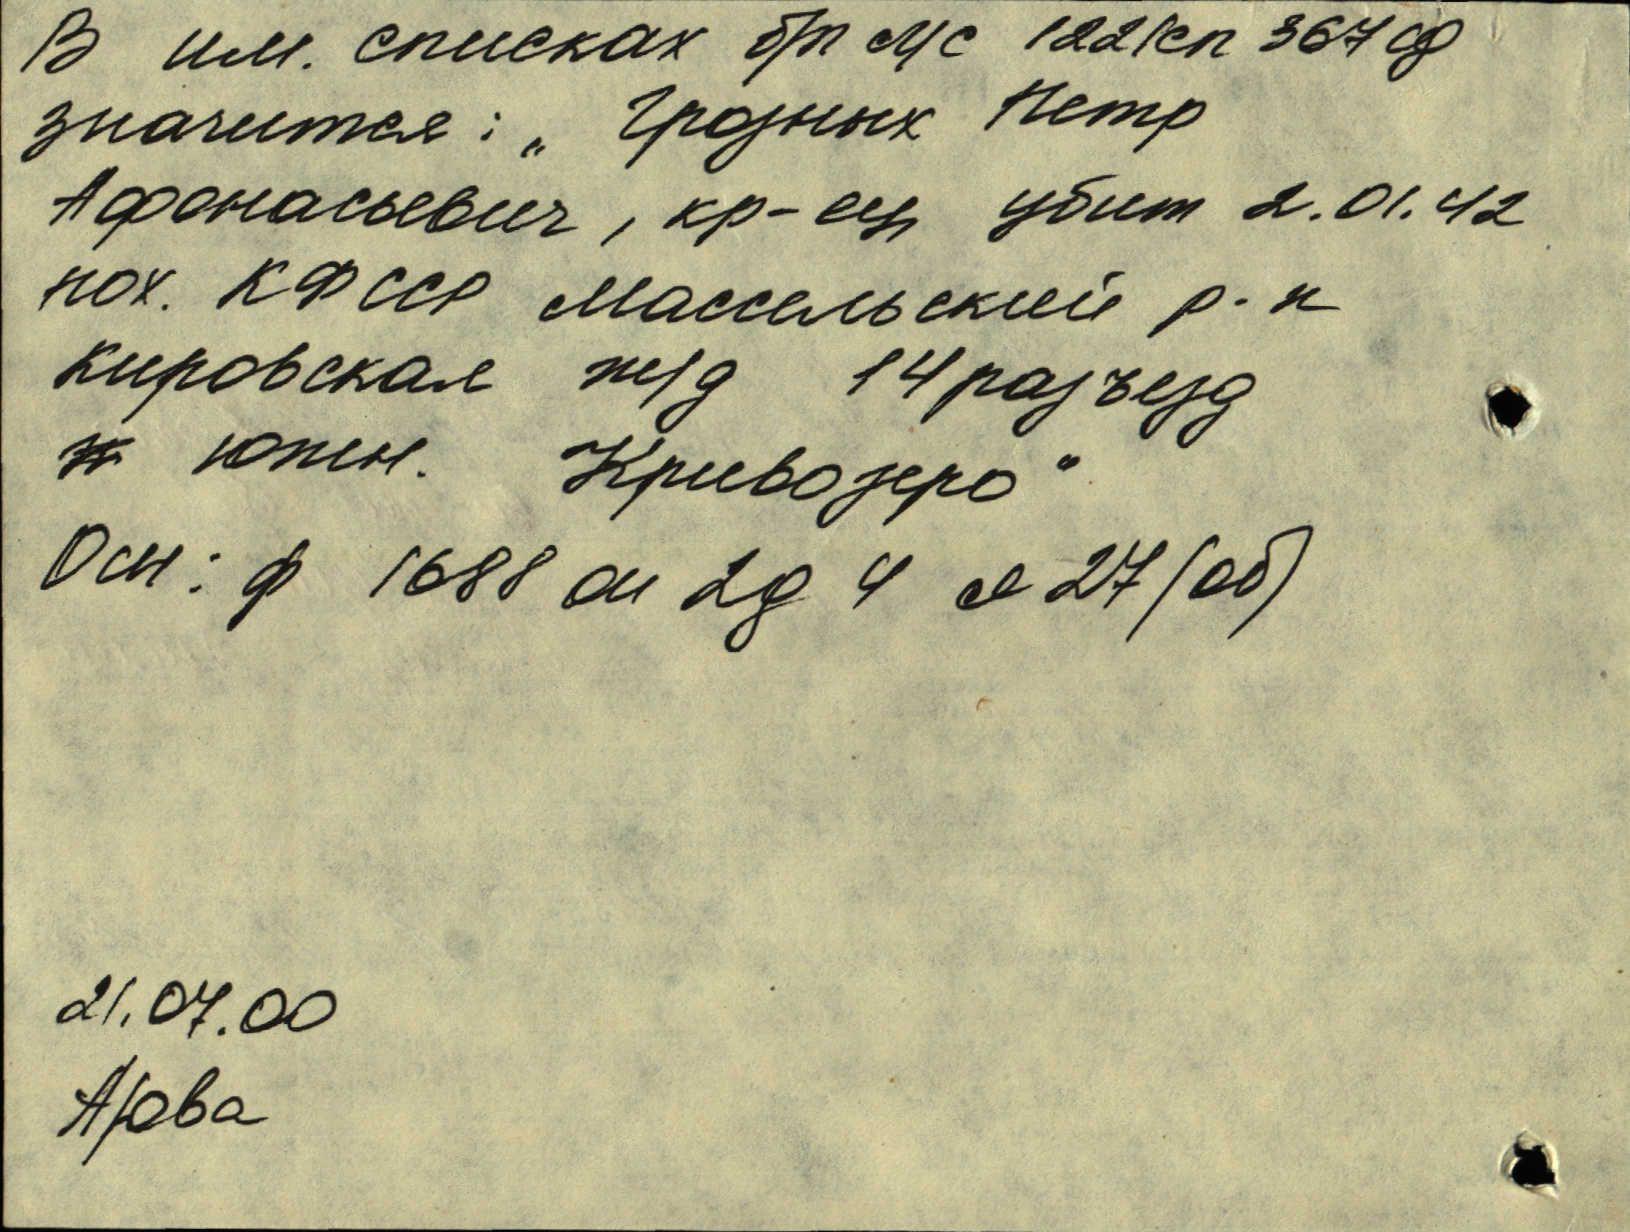 В им. списках б/п мс 1221сп 367 сд
значится: „Грозных Петр
Афонасьевич, кр-ец убит 2.01.42
пох. КФССР Массельский р-н
Кировская ж/д 14 разъезд
южн. Кривозеро"
Осн: ф 1688 оп 2 д 4 л 27 (об)
21.07.00